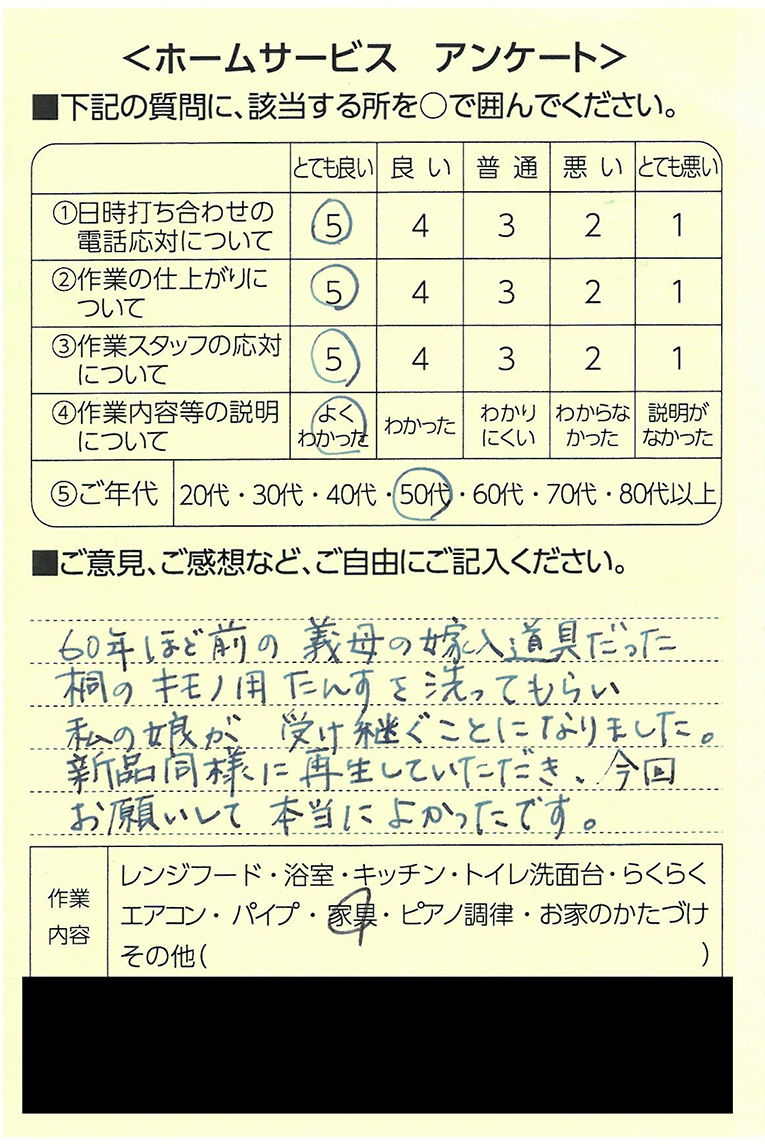 <ホームサービス アンケート>
■下記の質問に、該当する所を○で囲んでください。
とても良い 良い 普通 悪い とても悪い
①日時打ち合わせの
電話応対について 5 4 3 2 1
②作業の仕上がりに
ついて 5 4 3 2 1
③作業スタッフの応対
について 5 4 3 2 1
④作業内容等の説明
について よくわかった わかった わかりにくい わからなかった 説明がなかった
⑤ご年代 20代・30代・40代・50代・60代・70代・80代以上
■ご意見、ご感想など、ご自由にご記入ください。
60年ほど前の 義母の嫁入道具だった
桐のキモノ用たんすを洗ってもらい
私の娘が 受け継ぐことになりました。
新品同様に再生していただき、今回
お願いして 本当によかったです。
作業
内容
レンジフード・浴室・キッチン・トイレ洗面台・らくらく
エアコン・パイプ・家具・ピアノ調律・お家のかたづけ
その他( )